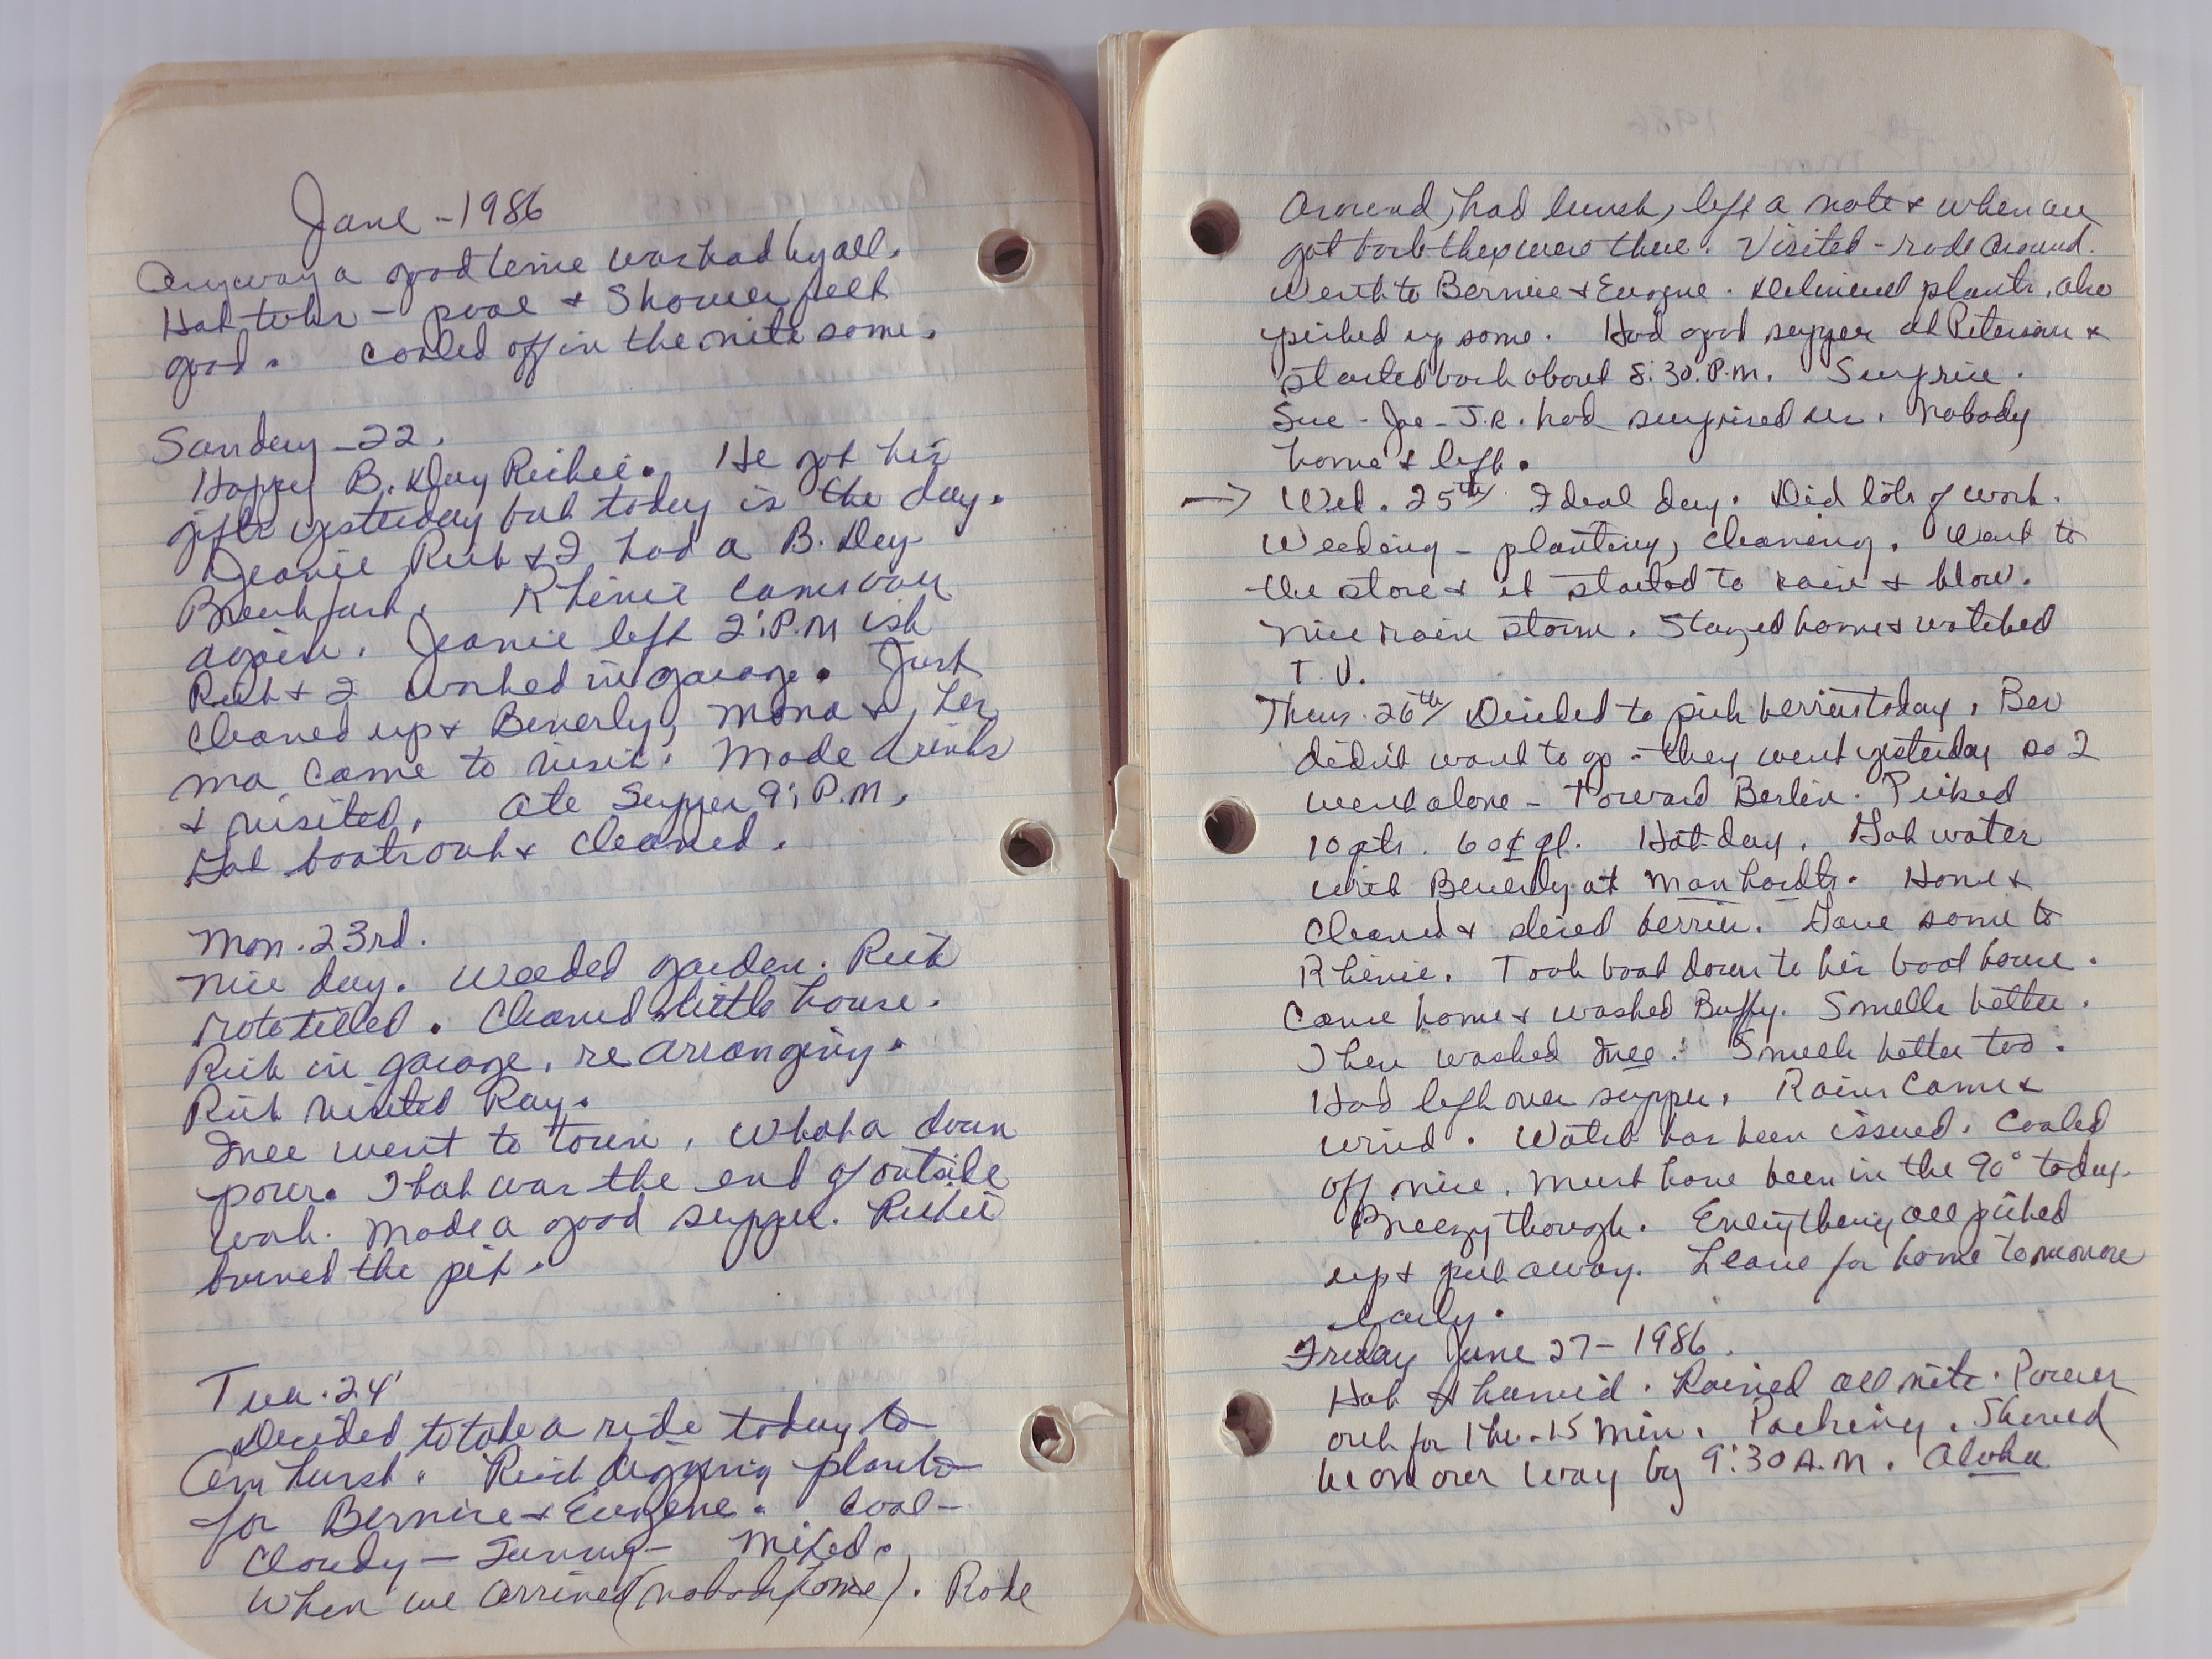 June - 1986
Anyway a good time was had by all.
Hot tubs - pool & Shower felt
good. Cooled off in the nite some.
Sunday - 22.
Happy B. Day Richie. He got his
gifts yesterday but today is the day.
Jeanie Rich & I had a B. Day
Breakfast. Rhinie came over
again. Jeanie left 2:P.M ish
Rich & I worked in garage. Just
cleaned up & Beverly, Mona & her
ma came to visit. Made drinks
& visited. Ate Supper 9:P.M.
Got boats out & cleaned.
Mon. 23rd.
Nice day. Weeded garden. Rich
rototilled. Cleaned little house.
Rich in garage, re arranging.
Rich visited Ray.
Mee went to town. What a down
pour. That was the end of outside
work. Made a good supper. Richie
burned the pit.
Tue. 24
Decided to take a ride today to
Amhurst. Rich digging plants
for Bernice & Eugene. Cool -
Cloudy - Sunny - Mixed.
When we arrived (nobody home). Rode
around, had lunch, left a note & when we
got back they were there. Visited - rode around.
Went to Bernice & Eugene. Delivered plants, also
picked up some. Had good supper at Petersons &
started back about 8:30.P.M. Surprise.
Sue - Joe - J.R. had surprised us. Nobody
home & left.
→ Wed. 25th Ideal day. Did lots of work.
Weeding - planting, cleaning. Went to
the store & it started to rain & blow.
Nice rain storm. Stayed home & watched
T.V.
Thurs. 26th Decided to pick berries today. Bev
didn't want to go - they went yesterday so I
went alone - Toward Berlin. Picked
10 qts. 60¢ qt. Hot day. Got water
with Beverly at Manhardts. Home &
Cleaned & sliced berries. Gave some to
Rhinie. Took boat down to his boat house.
Came home & washed Buffy. Smells better.
Then washed mee! Smell better too.
Had left over supper. Rain came &
wind. Watch has been issued. Cooled
off nice. Must have been in the 90° today.
Breezy though. Everything all picked
up & put away. Leave for home tomorrow
early.
Friday June 27 - 1986.
Hot & humid. Rained all nite. Power
out for 1 hr. - 15 min. Packing. Should
be on our way by 9:30 A.M. Aloha